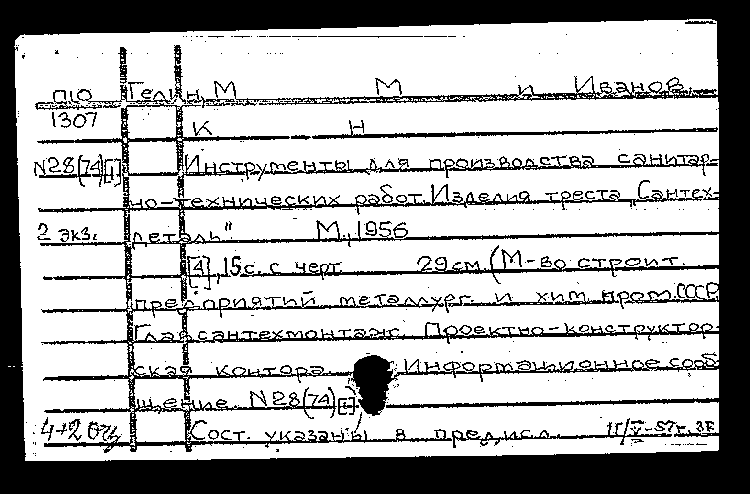 П10 Гелин, М М и Иванов,
1307 К Н
N28(74)[1] Инструменты для производства санитар-
но-технических работ. Изделия треста „Сантех-
2 экз. деталь" М., 1956
[4], 15с. с черт. 29см. (М-во строит.
предприятий металлург. и хим. пром. СССР.
Главсантехмонтаж. Проектно-конструктор-
ская контора. Информационное сооб-
щение. N28(74)
4+2 Сост. указаны в предисл. 11/V-57г.